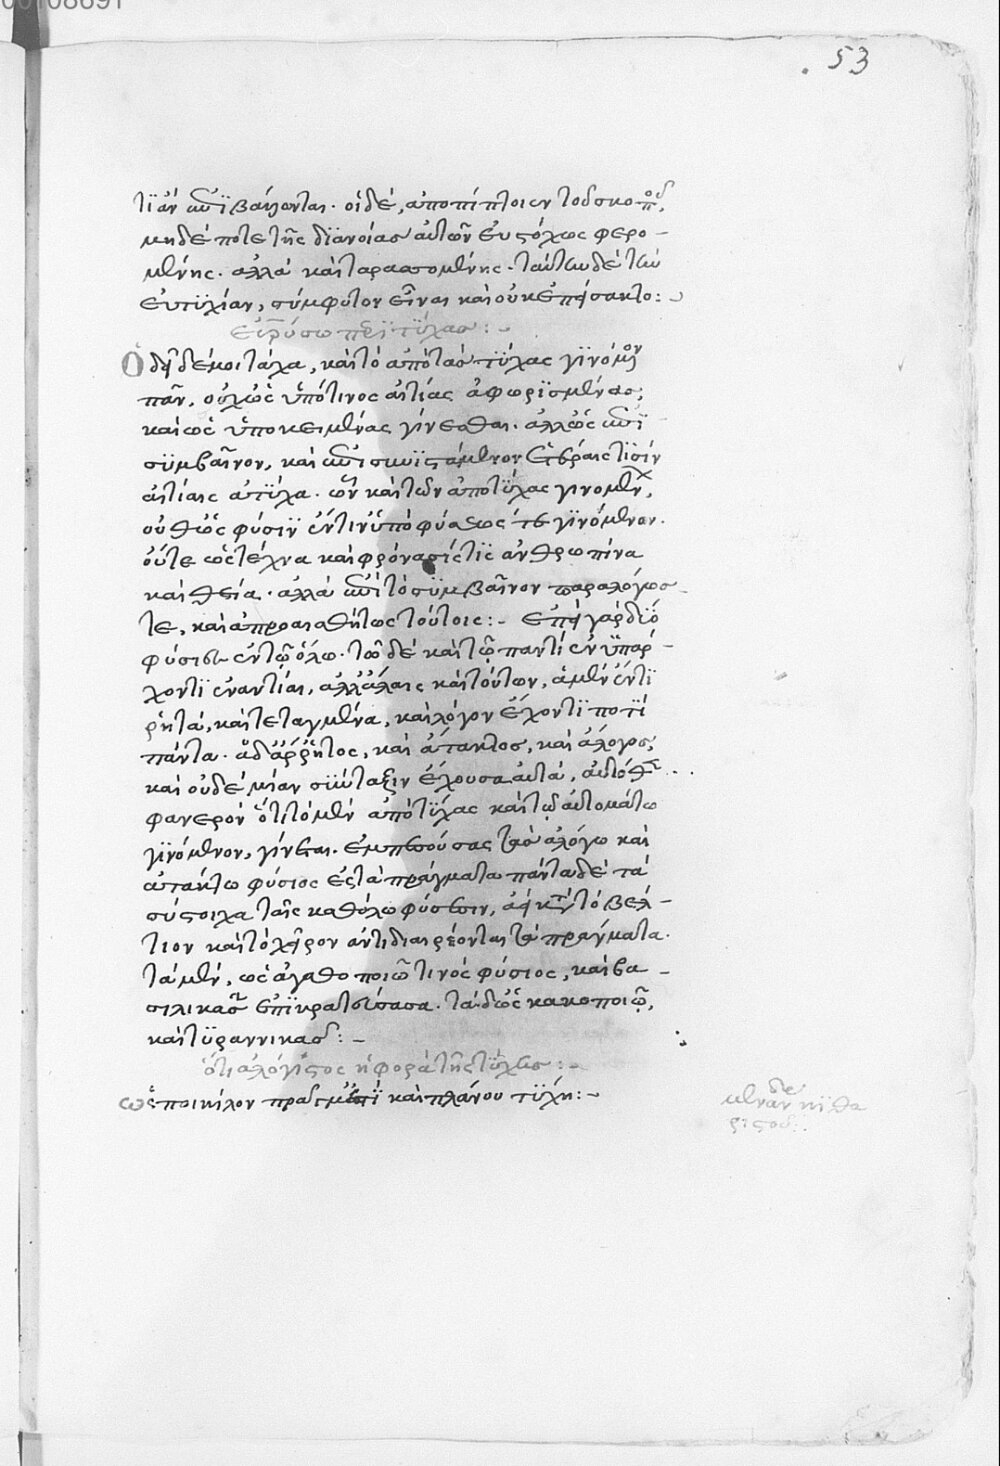 00108691
53
τϊ ἂν ἐπϊβάλωνται. οἱ δὲ, ἀποπίπτοιεν τοῦ σκοποῦ,
μηδέποτε τῆς διανοίας αὐτῶν εὐστόχως φερο-
μένης. ἀλλὰ καὶ ταρασσομένης. ταύταν δὲ τὰν
εὐτϋχίαν, σύμφυτον εἶναι καὶ οὐκ ἐπείσακτον:
ὁ δεῖ δέ μοι τάχα, καὶ τὸ ἀπὸ τᾶς τύχας γϊνόμενον
πᾶν, οὐχ ὡς ὑπό τινος αἰτίας ἀφωρϊσμένας,
καὶ ὡς ὑποκειμένας γίνεσθαι. ἀλλ' ὡς ἐπϊ-
σϋμβαῖνον, καὶ ἐπισυνϊστάμενον
αἰτίαις καὶ τῶν ἀπὸ τύχας γινομένων,
οὔθ' ὡς φύσιϊ ἔντιν ὑπὸ φύσεως γϊνόμενον.
οὔτε ὡς τέχνα καὶ φρόνασίς τϊς ἀνθρωπίνα
καὶ θεία. ἀλλὰ ἐπὶ τὸ σϋμβαῖνον παραλόγως
τε, καὶ ἀπροαισθήτως τούτοις: ἐπεὶ γὰρ δϊό
φύσιες ἐν τῷ ὅλω. καὶ τῷ παντὶ ἐνϋπάρ-
χοντϊ ἐναντίαι, ἀλλάλαις καὶ τούτων, ἁ μὲν ἐντϊ
ῥητά, καὶ τεταγμένα, καὶ λόγον ἔχοντϊ ποτϊ
πάντα. ἁ δ' ἄρρητος, καὶ ἄτακτος, καὶ ἄλογος,
καὶ οὐδεμίαν σϋνταξιν ἔχουσα αὐτά, αὐτόθεν
φανερὸν ὅτι τὸ μὲν ἀπὸ τϋχας καὶ τῷ αὐτομάτω
γϊνόμενον, γίνεται. ἐμπεσούσας τᾶς ἀλόγω καὶ
ἀτάκτω φύσιος ἐς τὰ πράγματα πάντα δὲ τὰ
σύστοιχα ταῖς καθόλω φύσεσιν, τὸ βέλ-
τιον καὶ τὸ χεῖρον ἀντιδιαιρέονται τὰ πράγματα.
τὰ μὲν, ὡς ἀγαθοποιῶ τινὸς φύσιος, καὶ βα-
σιλικᾶς ἐπϊκρατείσασα. τὰ δ' ὡς κακοποιῶ,
καὶ τϋραννικᾶς:
ὅτι ἀλόγιστος ἡ φορὰ τῆς τϋχης:
ὡς ποικίλον πρᾶγμ' ἐστϊ καὶ πλάνον τύχη:
μένανδρε